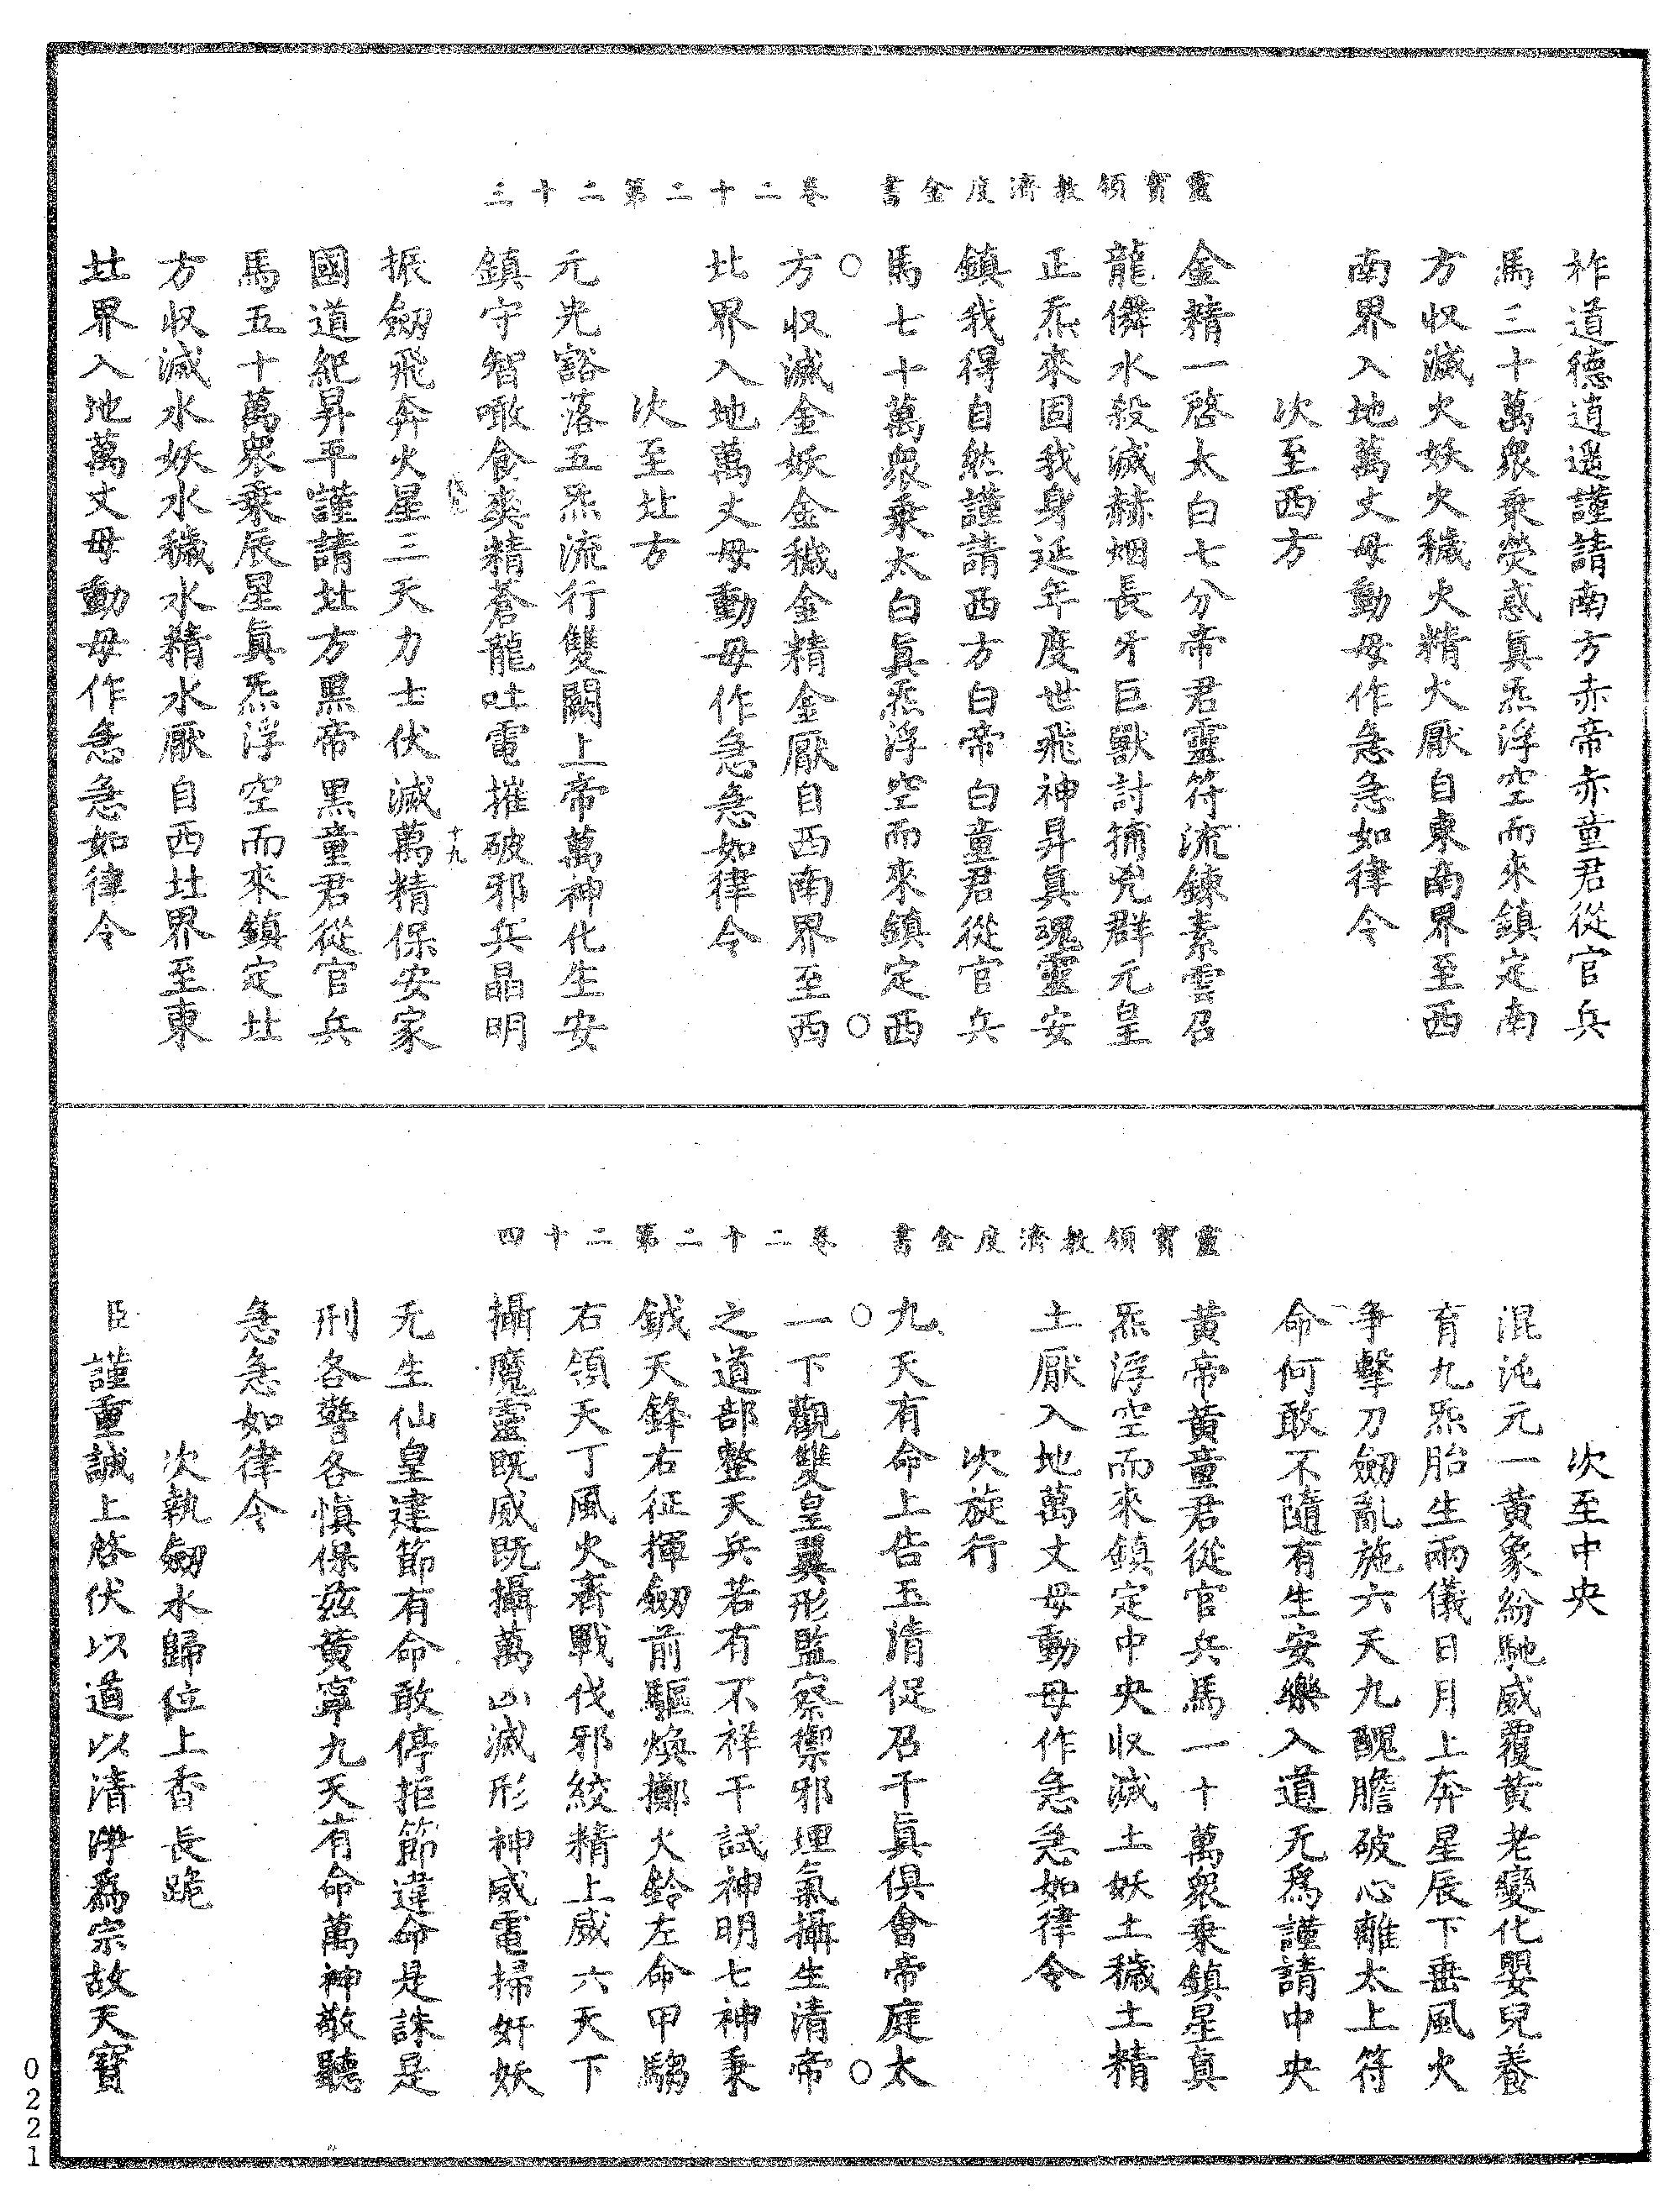 靈寶領教濟度金書 卷二十二第二十三
祚道德逍遥謹請南方赤帝赤童君從官兵
馬三十萬衆乘熒惑真炁浮空而來鎮定南
方收滅火妖火穢火精火厭自東南界至西
南界入地萬丈毋動毋作急急如律令
次至西方
金精一啓太白七分帝君靈符流鍊素雲召
龍儛水殺滅赫烟長牙巨獸討捕兇群元皇
正炁來固我身延年度世飛神昇真魂靈安
鎮我得自然謹請西方白帝白童君從官兵
馬七十萬衆乘太白真炁浮空而來鎮定西
方收滅金妖金穢金精金厭自西南界至西
北界入地萬丈毋動毋作急急如律令
次至北方
元光豁落五炁流行雙闕上帝萬神化生安
鎮守智噉食奭精蒼龍吐電摧破邪兵晶明
十九
振劒飛奔火星三天力士伏滅萬精保安家
國道紀昇平謹請北方黑帝黑童君從官兵
馬五十萬衆乘辰星真炁浮空而來鎮定北
方收滅水妖水穢水精水厭自西北界至東
北界入地萬丈毋動毋作急急如律令
靈寶領教濟度金書 卷二十二第二十四
次至中央
混沌元一黃象紛馳威覆黃老變化嬰兒養
育九炁胎生兩儀日月上奔星辰下垂風火
爭擊刀劒亂施六天九醜膽破心離太上符
命何敢不隨有生安樂入道无爲謹請中央
黃帝黃童君從官兵馬一十萬衆乘鎮星真
炁浮空而來鎮定中央收滅土妖土穢土精
土厭入地萬丈毋動毋作急急如律令
次旋行
九天有命上告玉清促召千真俱會帝庭太
一下觀雙皇翼形監察禦邪理氣攝生清帝
之道部整天兵若有不祥干試神明七神秉
鉞天鋒右征揮劒前驅煥擲火鈴左命甲騶
右領天丁風火齊戰伐邪絞精上威六天下
攝魔靈既威既攝萬凶滅形神威電掃奸妖
无生仙皇建節有命敢停拒節違命是誅是
刑各警各慎保茲黃寧九天有命萬神敬聽
急急如律令
次執劒水歸位上香長跪
臣謹重誠上啓伏以道以清淨爲宗故天寶
0221